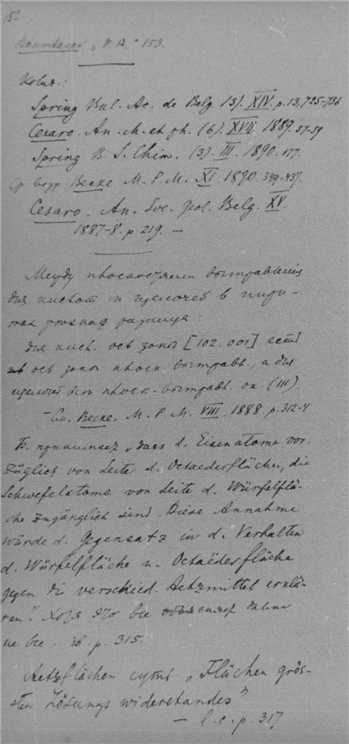 152
Baumhauer „R. A." 153.
Spring Bul. Ac. de Belg. (3). XIV. p. 13, 725-736
Cesaro. An. ch. et ph. (6). XVII. 1889. 37-39
Spring B. S. Chim. (3). III. 1890. 177.
Ср. Becke M. P. M. XI. 1890. 349-437.
Cesaro. An. Soc. géol. Belg. XV
1887-8. p. 219. —
Между плоскостями вытравления
для кислот и щелочей в пири-
тах разница:
для кисл. ось зоны [102.001] есть
ось зоны плоск. вытравл., а для
щелочей плоск. вытравл. ок. (111)
— См. Becke. M. P. M. VIII. 1888. p. 312-4
Б. принимает „dass d. Eisenatome vor-
züglich von Seite d. Octaederflächen, die
Schwefelatome von Seite d. Würfelflä-
che zugänglich sind. Diese Annahme
würde d. Gegensatz in d. Verhalten
d. Würfelfläche u. Octaëderfläche
gegen die verschied. Aetzmittel erklä-
ren." Хотя это все объясняет
не все. ib. p. 315.
Aetzflächen суть „Flächen grös-
sten Lösungswiderstandes"
— l. c. p. 317